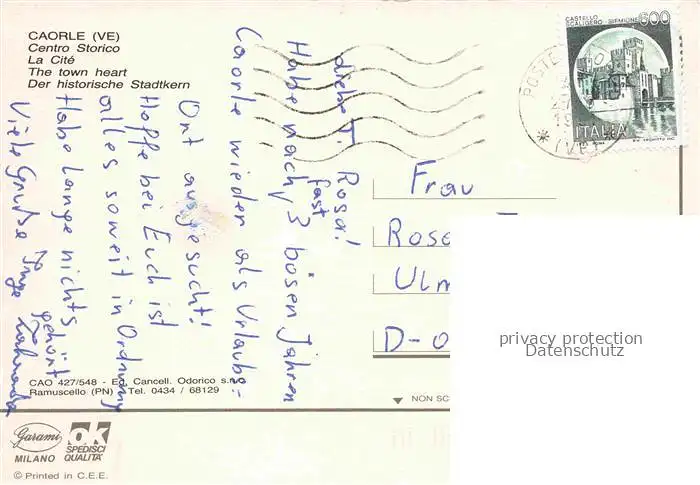 CAORLE (VE)
Centro Storico
La Cité
The town heart
Der historische Stadtkern
CASTELLO
SCALIGERO - SIRMIONE
600
ITALIA
POSTE
(VE)
Liebe T. Rosa!
Habe nach fast 3 bösen Jahren
Caorle wieder als Urlaubs-
Ort ausgesucht!
Hoffe bei Euch ist
alles soweit in Ordnung
Habe lange nichts
gehört
Viele Grüße Inge
Frau
Rosa
Ulm
D-
privacy protection
Datenschutz
CAO 427/548 - Ed. Cancell. Odorico s.n.c.
Ramuscello (PN) - Tel. 0434 / 68129
NON SC
Garami
MILANO
OK
SPEDISCI
QUALITA'
© Printed in C.E.E.